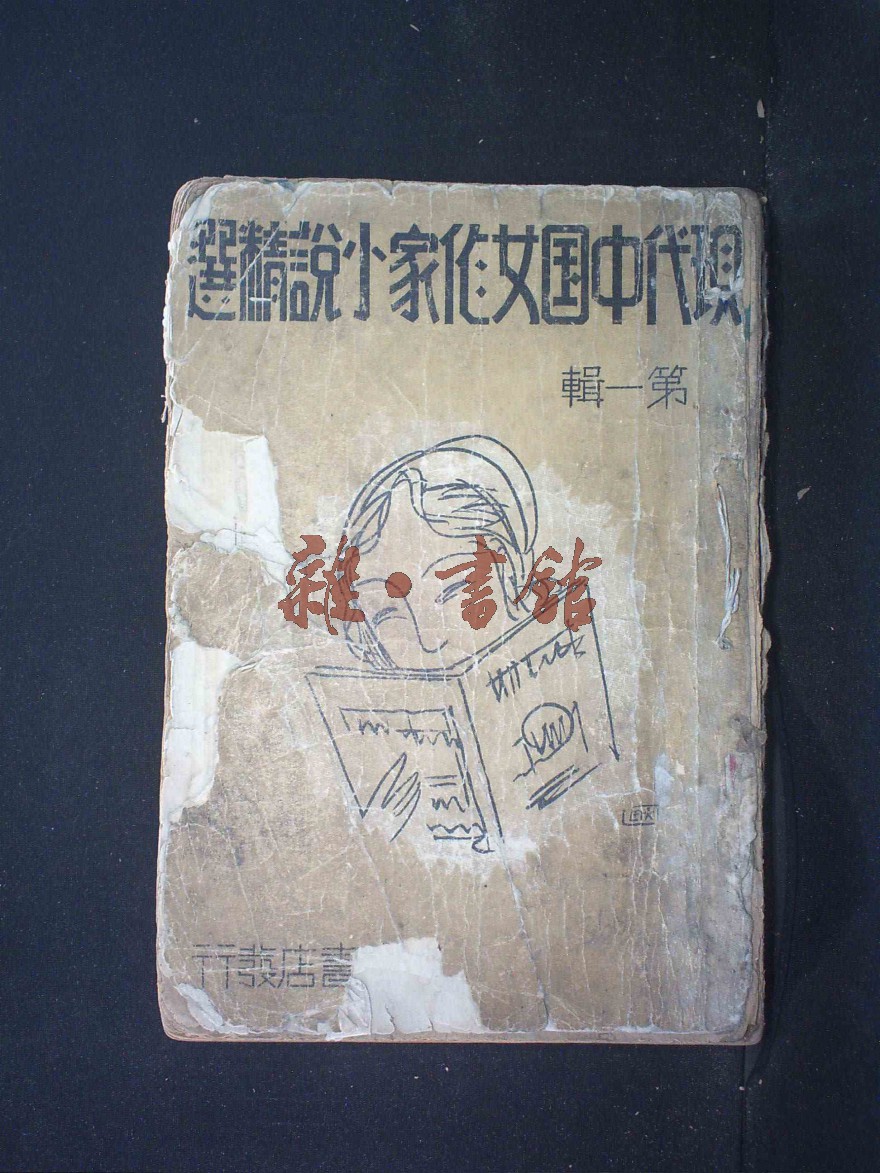 現代中国女作家小說精選
第一輯
雜·書館
書店發行